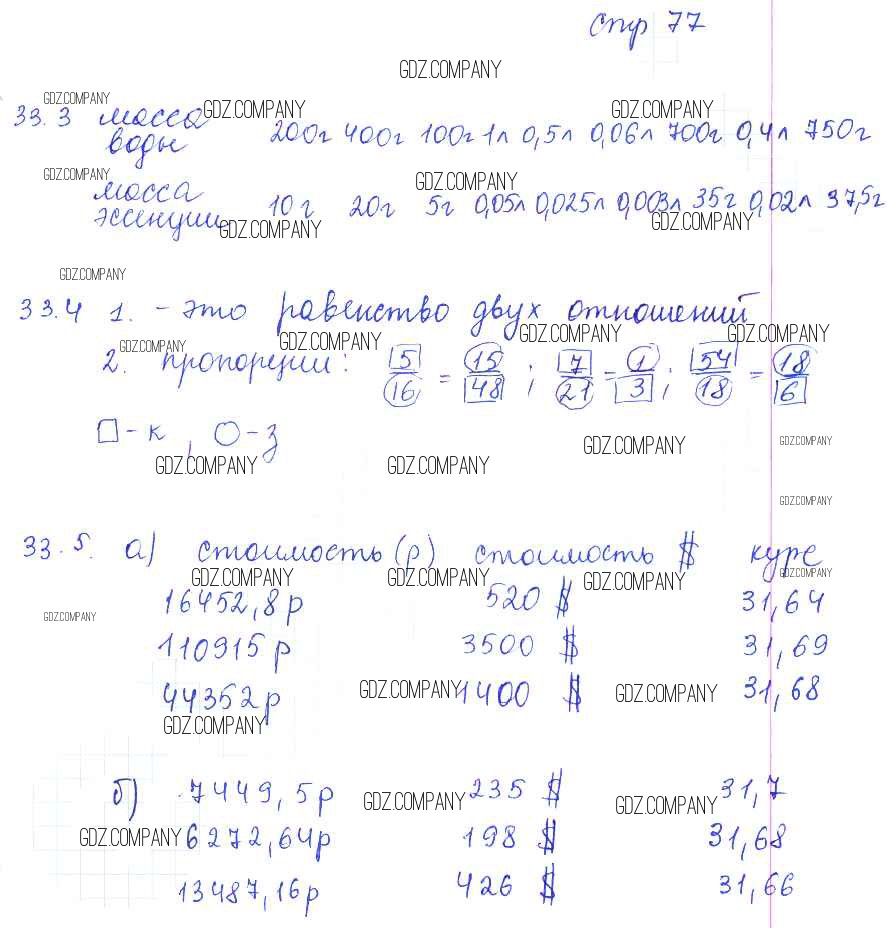 стр 77
GDZ.COMPANY
GDZ.COMPANY GDZ.COMPANY GDZ.COMPANY
33.3 масса воды 200г 400г 100г 1л 0,5л 0,06л 700г 0,4л 750г
GDZ.COMPANY GDZ.COMPANY
масса эссенции 10г 20г 5г 0,05л 0,025л 0,003л 35г 0,02л 37,5г
GDZ.COMPANY GDZ.COMPANY
GDZ.COMPANY
33.4 1. - это равенство двух отношений
GDZ.COMPANY GDZ.COMPANY GDZ.COMPANY GDZ.COMPANY
2. пропорции: 5/16 = 15/48 ; 7/21 = 1/3 ; 54/18 = 18/6
□ - к , ○ - з
GDZ.COMPANY GDZ.COMPANY GDZ.COMPANY GDZ.COMPANY
GDZ.COMPANY
33.5. а) стоимость (р) стоимость $ курс
GDZ.COMPANY GDZ.COMPANY GDZ.COMPANY GDZ.COMPANY
16452,8р 520 $ 31,64
GDZ.COMPANY
110915р 3500 $ 31,69
44352р 1400 $ 31,68
GDZ.COMPANY GDZ.COMPANY
GDZ.COMPANY
б) 7449,5р 235 $ 31,7
GDZ.COMPANY GDZ.COMPANY
GDZ.COMPANY 6272,64р 198 $ 31,68
13487,16р 426 $ 31,66